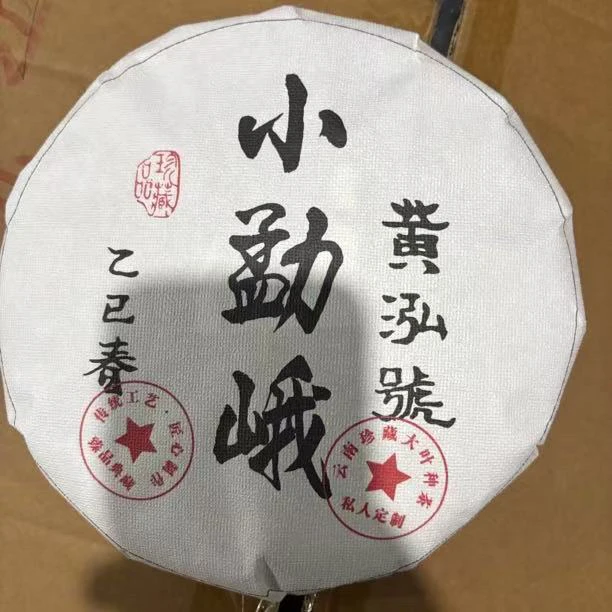 黄泓號
小勐峨
乙巳春
珍藏品
云南珍藏大叶种茶
私人定制
传统工艺·匠心制作
臻品典藏